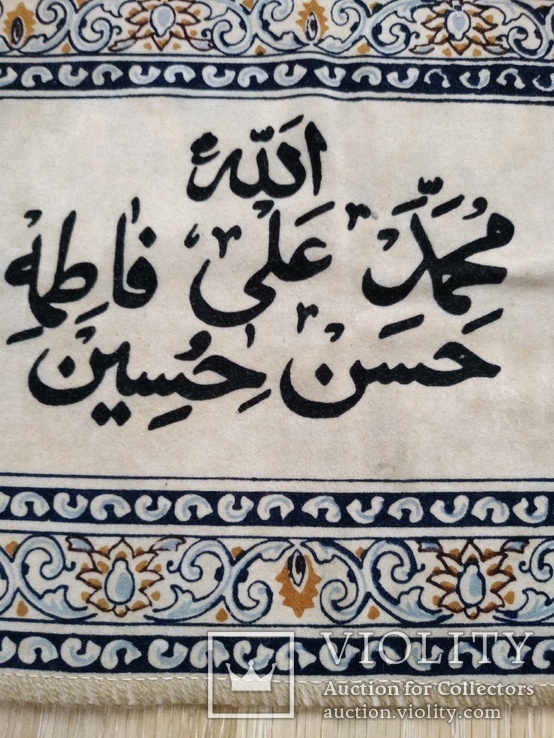 الله
مُحَمَّد عَلی فاطِمِه
حَسَن حُسِین
VIOLITY
Auction for Collectors
auction.violity.com